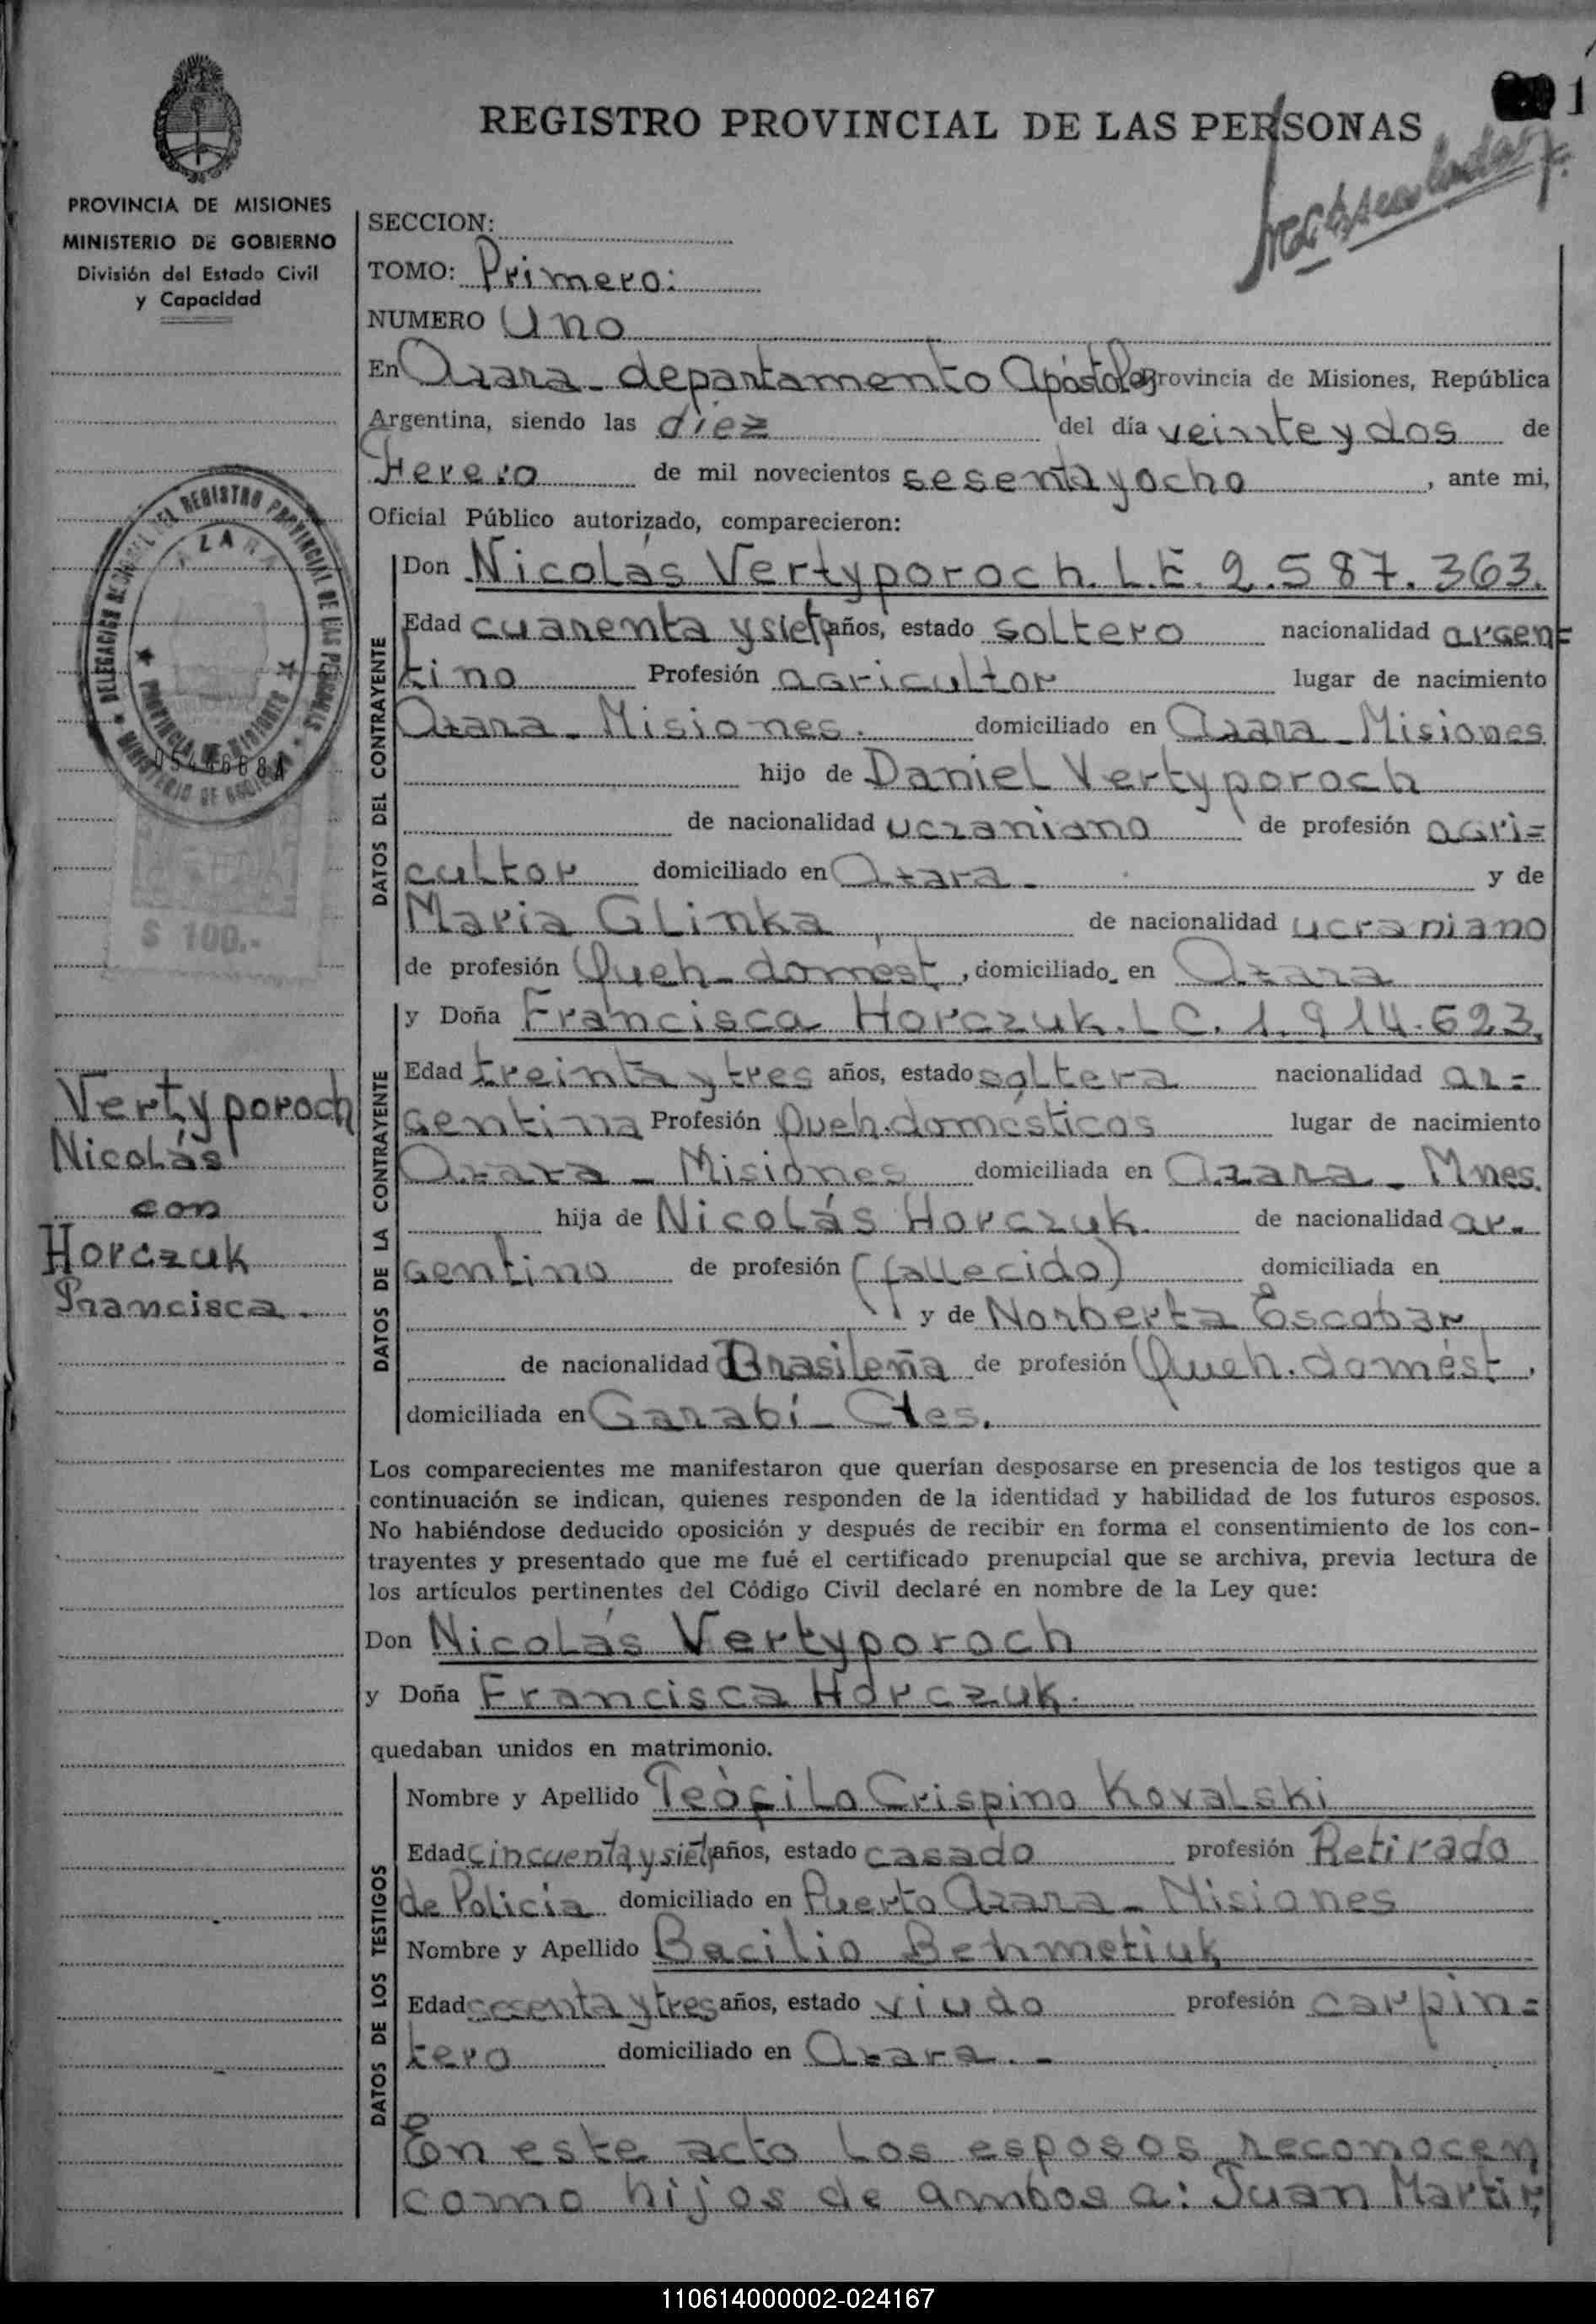 1
REGISTRO PROVINCIAL DE LAS PERSONAS
PROVINCIA DE MISIONES
MINISTERIO DE GOBIERNO
División del Estado Civil
y Capacidad
SECCION:
TOMO: Primero:
NUMERO Uno
En Azara - departamento Apóstoles Provincia de Misiones, República
Argentina, siendo las diez del día veinte y dos de
Herero de mil novecientos sesenta y ocho, ante mi,
Oficial Público autorizado, comparecieron:
DATOS DEL CONTRAYENTE
Don Nicolás Vertyporoch. L.E. 2.587.363.
Edad cuarenta y siete años, estado soltero nacionalidad argen=
tino Profesión agricultor lugar de nacimiento
Azara - Misiones. domiciliado en Azara - Misiones
hijo de Daniel Vertyporoch
de nacionalidad ucraniano de profesión agri=
cultor domiciliado en Azara - y de
Maria Glinka de nacionalidad ucraniano
de profesión Queh - domést, domiciliado en Azara
DATOS DE LA CONTRAYENTE
y Doña Francisca Horczuk. L.C. 1.914.623,
Edad treinta y tres años, estado soltera nacionalidad ar=
gentina Profesión Queh. domésticos lugar de nacimiento
Azara - Misiones domiciliada en Azara - Mnes.
hija de Nicolás Horczuk. de nacionalidad ar-
gentino de profesión (fallecido) domiciliada en
y de Norberta Escobar
de nacionalidad Brasileña de profesión Queh. domést,
domiciliada en Garabí - Ctes.
Los comparecientes me manifestaron que querían desposarse en presencia de los testigos que a
continuación se indican, quienes responden de la identidad y habilidad de los futuros esposos.
No habiéndose deducido oposición y después de recibir en forma el consentimiento de los con-
trayentes y presentado que me fué el certificado prenupcial que se archiva, previa lectura de
los artículos pertinentes del Código Civil declaré en nombre de la Ley que:
Don Nicolás Vertyporoch
y Doña Francisca Horczuk.
quedaban unidos en matrimonio.
DATOS DE LOS TESTIGOS
Nombre y Apellido Teófilo Crispino Kovalski
Edad cincuenta y siete años, estado casado profesión Retirado
de Policia domiciliado en Puerto Azara - Misiones
Nombre y Apellido Bacilio Behmetiuk
Edad sesenta y tres años, estado viudo profesión carpin=
tero domiciliado en Azara. -
En este acto los esposos reconocen
como hijos de ambos a: Juan Martin,
DELEGACION DEL REGISTRO PROVINCIAL DE LAS PERSONAS
AZARA
PROVINCIA DE MISIONES
MINISTERIO DE GOBIERNO
$ 100.-
Vertyporoch
Nicolás
con
Horczuk
Francisca.
110614000002-024167